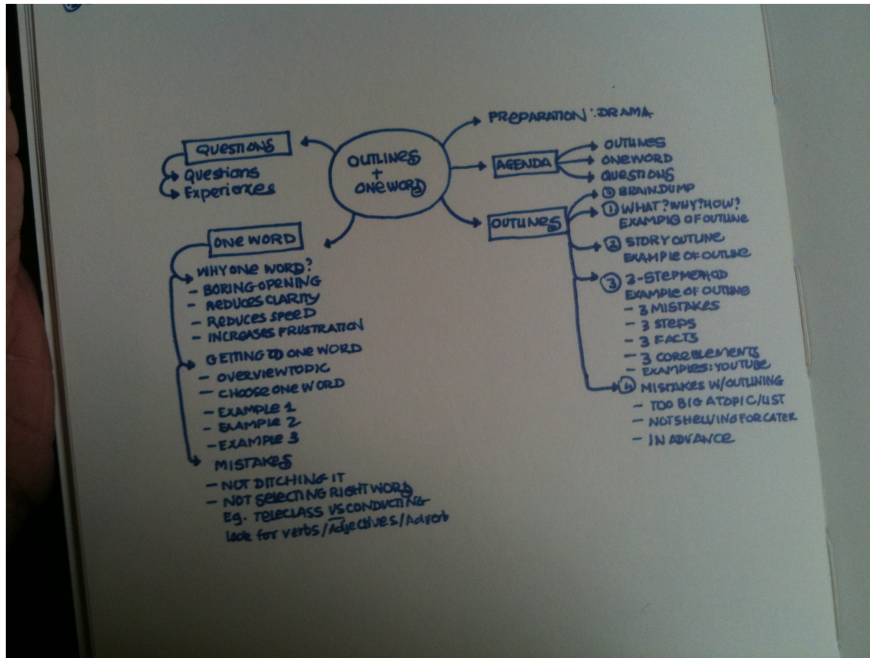 OUTLINES
+
ONE WORD
PREPARATION: DRAMA
AGENDA
OUTLINES
ONE WORD
QUESTIONS
OUTLINES
BRAINDUMP
① WHAT? WHY? HOW?
EXAMPLE OF OUTLINE
② STORY OUTLINE
EXAMPLE OF OUTLINE
③ 3-STEP METHOD
EXAMPLE OF OUTLINE
- 3 MISTAKES
- 3 STEPS
- 3 FACTS
- 3 CORE ELEMENTS
- EXAMPLES: YOUTUBE
④ MISTAKES W/OUTLINING
- TOO BIG A TOPIC/LIST
- NOT SHELVING FOR LATER
- IN ADVANCE
QUESTIONS
Questions
Experiences
ONE WORD
WHY ONE WORD?
- BORING OPENING
- REDUCES CLARITY
- REDUCES SPEED
- INCREASES FRUSTRATION
GETTING TO ONE WORD
- OVERVIEW TOPIC
- CHOOSE ONE WORD
- EXAMPLE 1
- EXAMPLE 2
- EXAMPLE 3
MISTAKES
- NOT DITCHING IT
- NOT SELECTING RIGHT WORD
Eg. TELECLASS VS CONDUCTING
look for verbs/Adjectives/Adverb